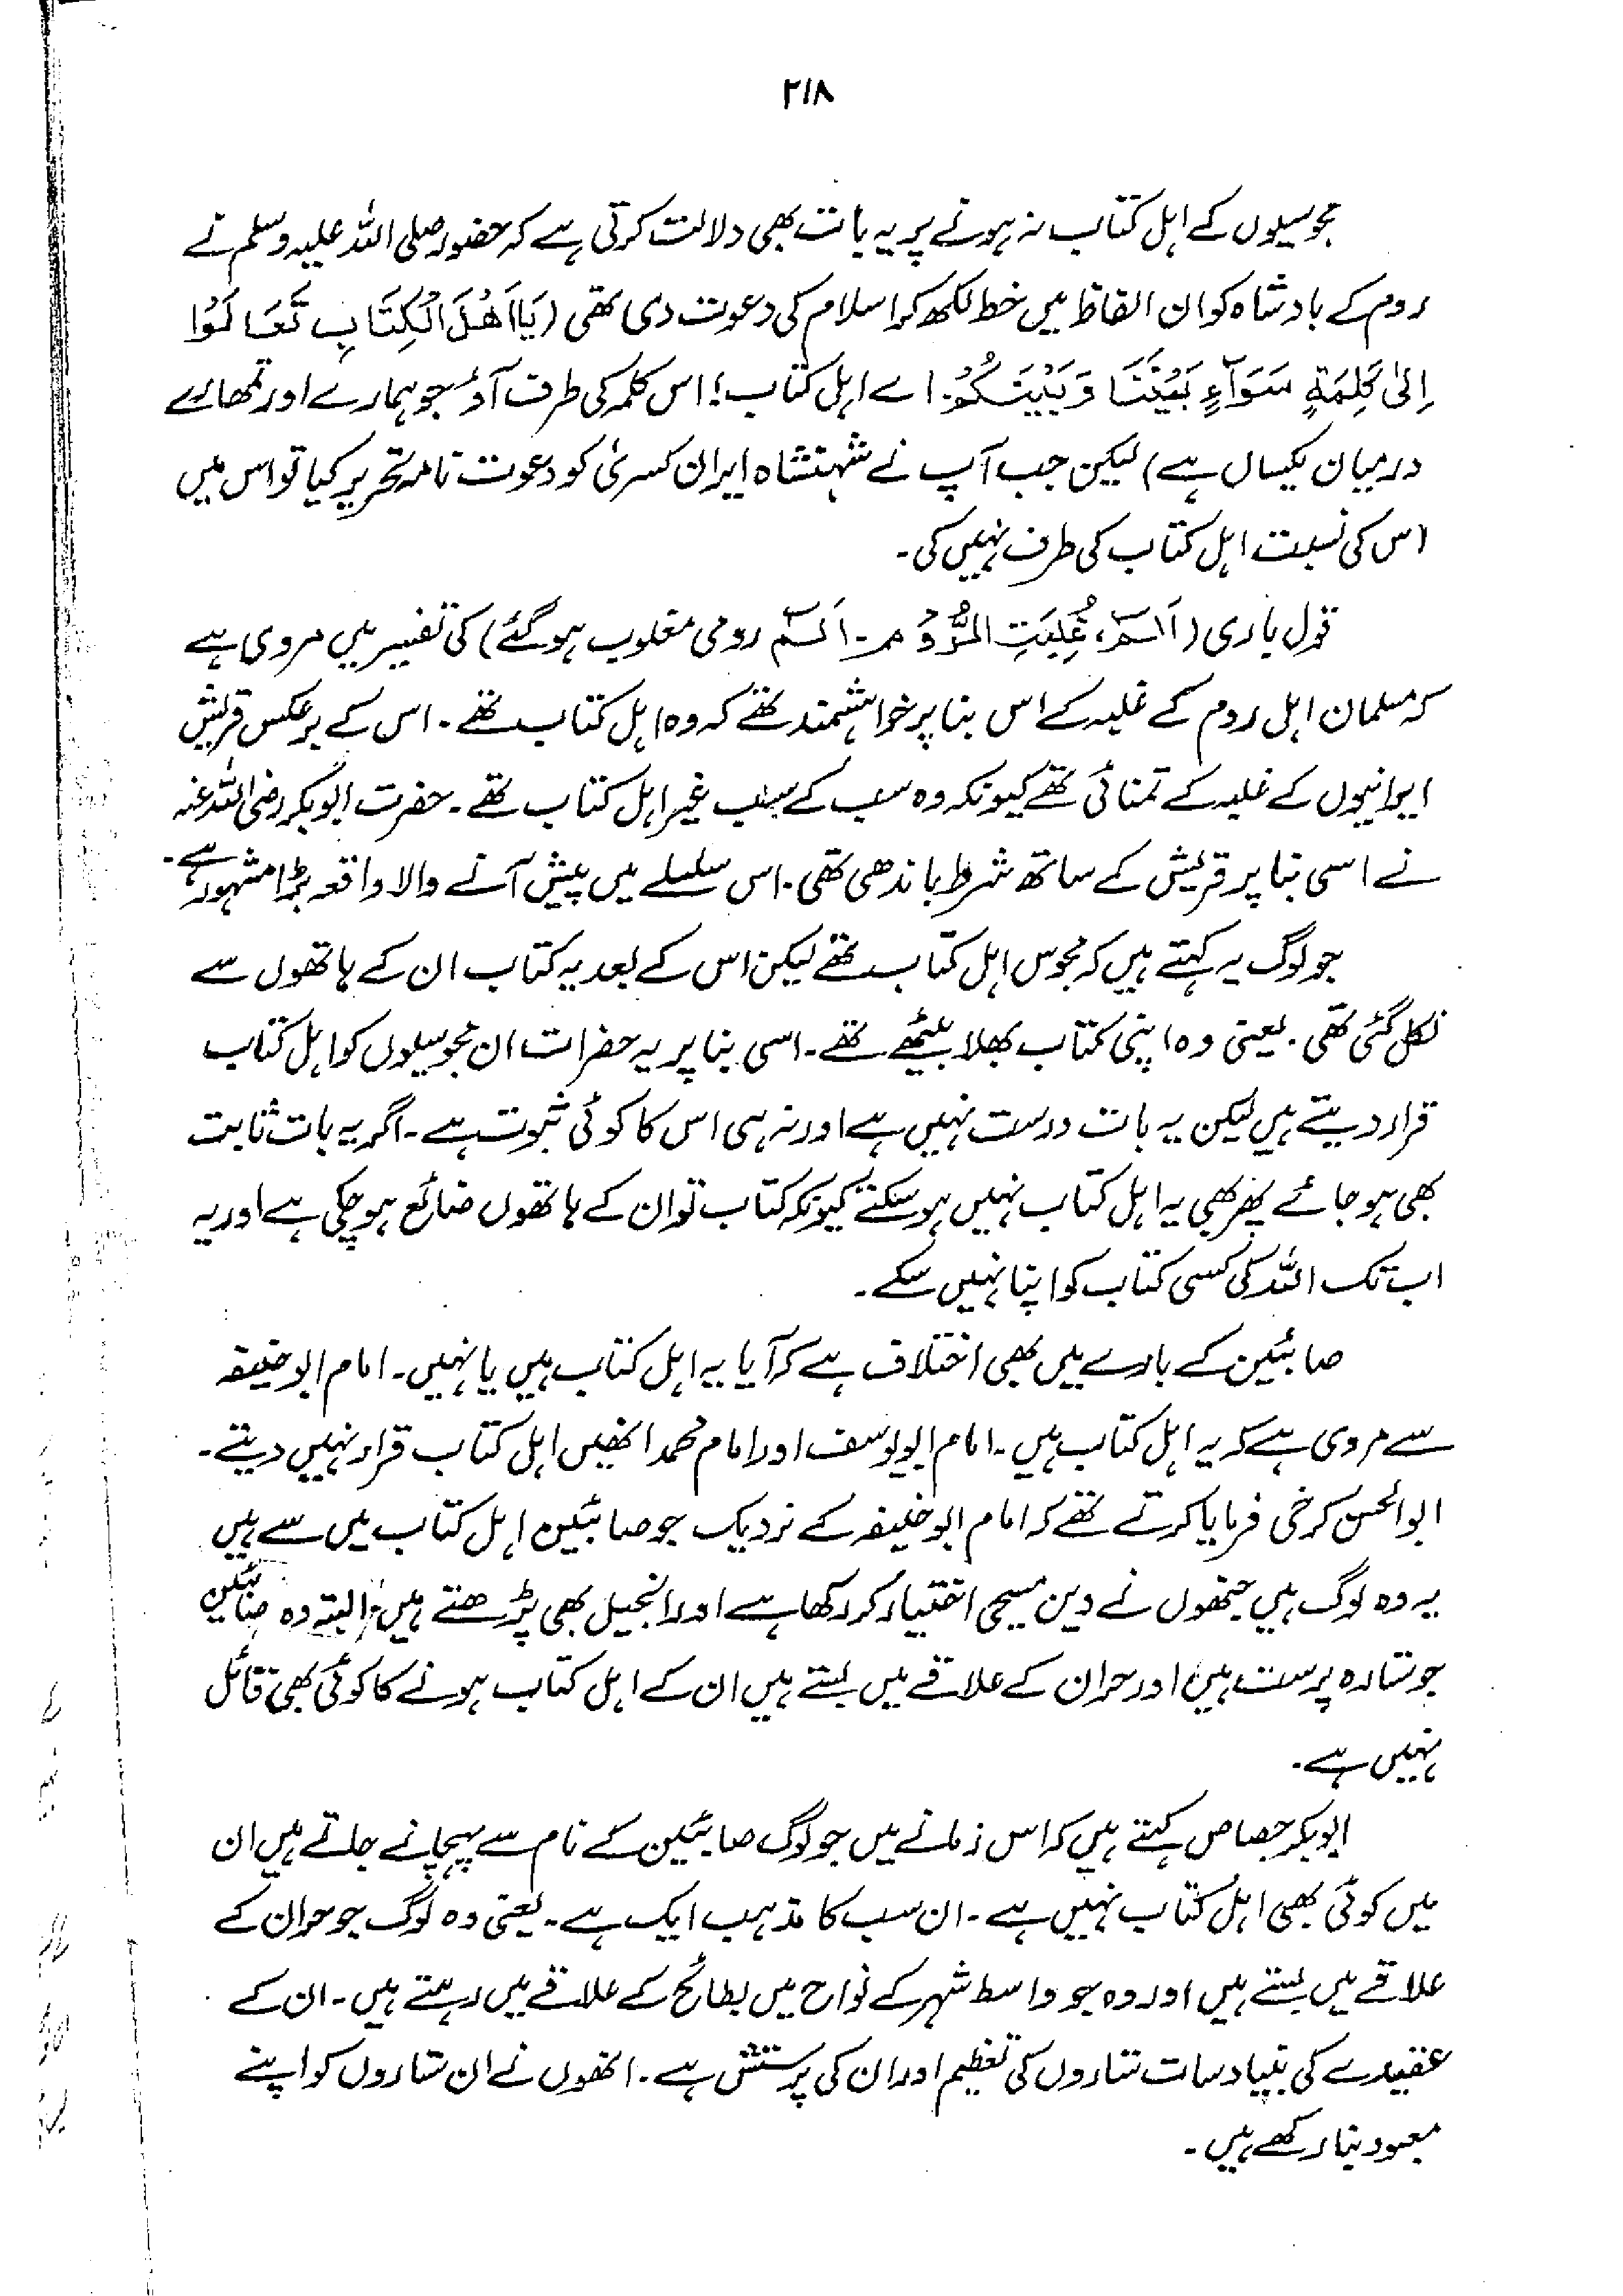 ۲۱۸
مجوسیوں کے اہل کتاب نہ ہونے پر یہ بات بھی دلالت کرتی ہے کہ حضور صلی اللہ علیہ وسلم نے
روم کے بادشاہ کو ان الفاظ میں خط لکھ کر اسلام کی دعوت دی تھی (یَا اَھْلَ الْکِتَابِ تَعَالَوْا
اِلیٰ کَلِمَۃٍ سَوَآءٍ بَیْنَنَا وَ بَیْنَکُمْ. اے اہل کتاب! اس کلمہ کی طرف آؤ جو ہمارے اور تمھارے
درمیان یکساں ہے) لیکن جب آپ نے شہنشاہ ایران کسریٰ کو دعوت نامہ تحریر کیا تو اس میں
اس کی نسبت اہل کتاب کی طرف نہیں کی۔
قول باری (اَلٓمّٓ، غُلِبَتِ الرُّوْمُ۔ الٓمّٓ رومی مغلوب ہو گئے) کی تفسیر میں مروی ہے
کہ مسلمان اہل روم کے غلبہ کے اس بنا پر خواہشمند تھے کہ وہ اہل کتاب تھے۔ اس کے برعکس قریش
ایرانیوں کے غلبہ کے تمنائی تھے کیونکہ وہ سب کے سب غیر اہل کتاب تھے۔ حضرت ابوبکر رضی اللہ عنہ
نے اسی بنا پر قریش کے ساتھ شرط باندھی تھی۔ اس سلسلے میں پیش آنے والا واقعہ بڑا مشہور ہے۔
جو لوگ یہ کہتے ہیں کہ مجوس اہل کتاب تھے لیکن اس کے بعد یہ کتاب ان کے ہاتھوں سے
نکل گئی تھی۔ یعنی وہ اپنی کتاب بھلا بیٹھے تھے۔ اسی بنا پر یہ حضرات ان مجوسیوں کو اہل کتاب
قرار دیتے ہیں لیکن یہ بات درست نہیں ہے اور نہ ہی اس کا کوئی ثبوت ہے۔ اگر یہ بات ثابت
بھی ہو جائے پھر بھی یہ اہل کتاب نہیں ہو سکتے کیونکہ کتاب تو ان کے ہاتھوں ضائع ہو چکی ہے اور یہ
اب تک اللہ کی کسی کتاب کو اپنا نہیں سکے۔
صابئین کے بارے میں بھی اختلاف ہے کہ آیا یہ اہل کتاب ہیں یا نہیں۔ امام ابوحنیفہ
سے مروی ہے کہ یہ اہل کتاب ہیں۔ امام ابویوسف اور امام محمد انھیں اہل کتاب قرار نہیں دیتے۔
ابوالحسن کرخی فرمایا کرتے تھے کہ امام ابوحنیفہ کے نزدیک جو صابئین اہل کتاب میں سے ہیں
یہ وہ لوگ ہیں جنھوں نے دین مسیحی اختیار کر رکھا ہے اور انجیل بھی پڑھتے ہیں۔ البتہ وہ صابئین
جو ستارہ پرست ہیں اور حران کے علاقے میں بستے ہیں ان کے اہل کتاب ہونے کا کوئی بھی قائل
نہیں ہے۔
ابوبکر جصاص کہتے ہیں کہ اس زمانے میں جو لوگ صابئین کے نام سے پہچانے جاتے ہیں ان
میں کوئی بھی اہل کتاب نہیں ہے۔ ان سب کا مذہب ایک ہے۔ یعنی وہ لوگ جو حران کے
علاقے میں بستے ہیں اور وہ جو واسط شہر کے نواح میں بطائح کے علاقے میں رہتے ہیں۔ ان کے
عقیدے کی بنیاد سات ستاروں کی تعظیم اور ان کی پرستش ہے۔ انھوں نے ان ستاروں کو اپنے
معبود بنا رکھے ہیں۔